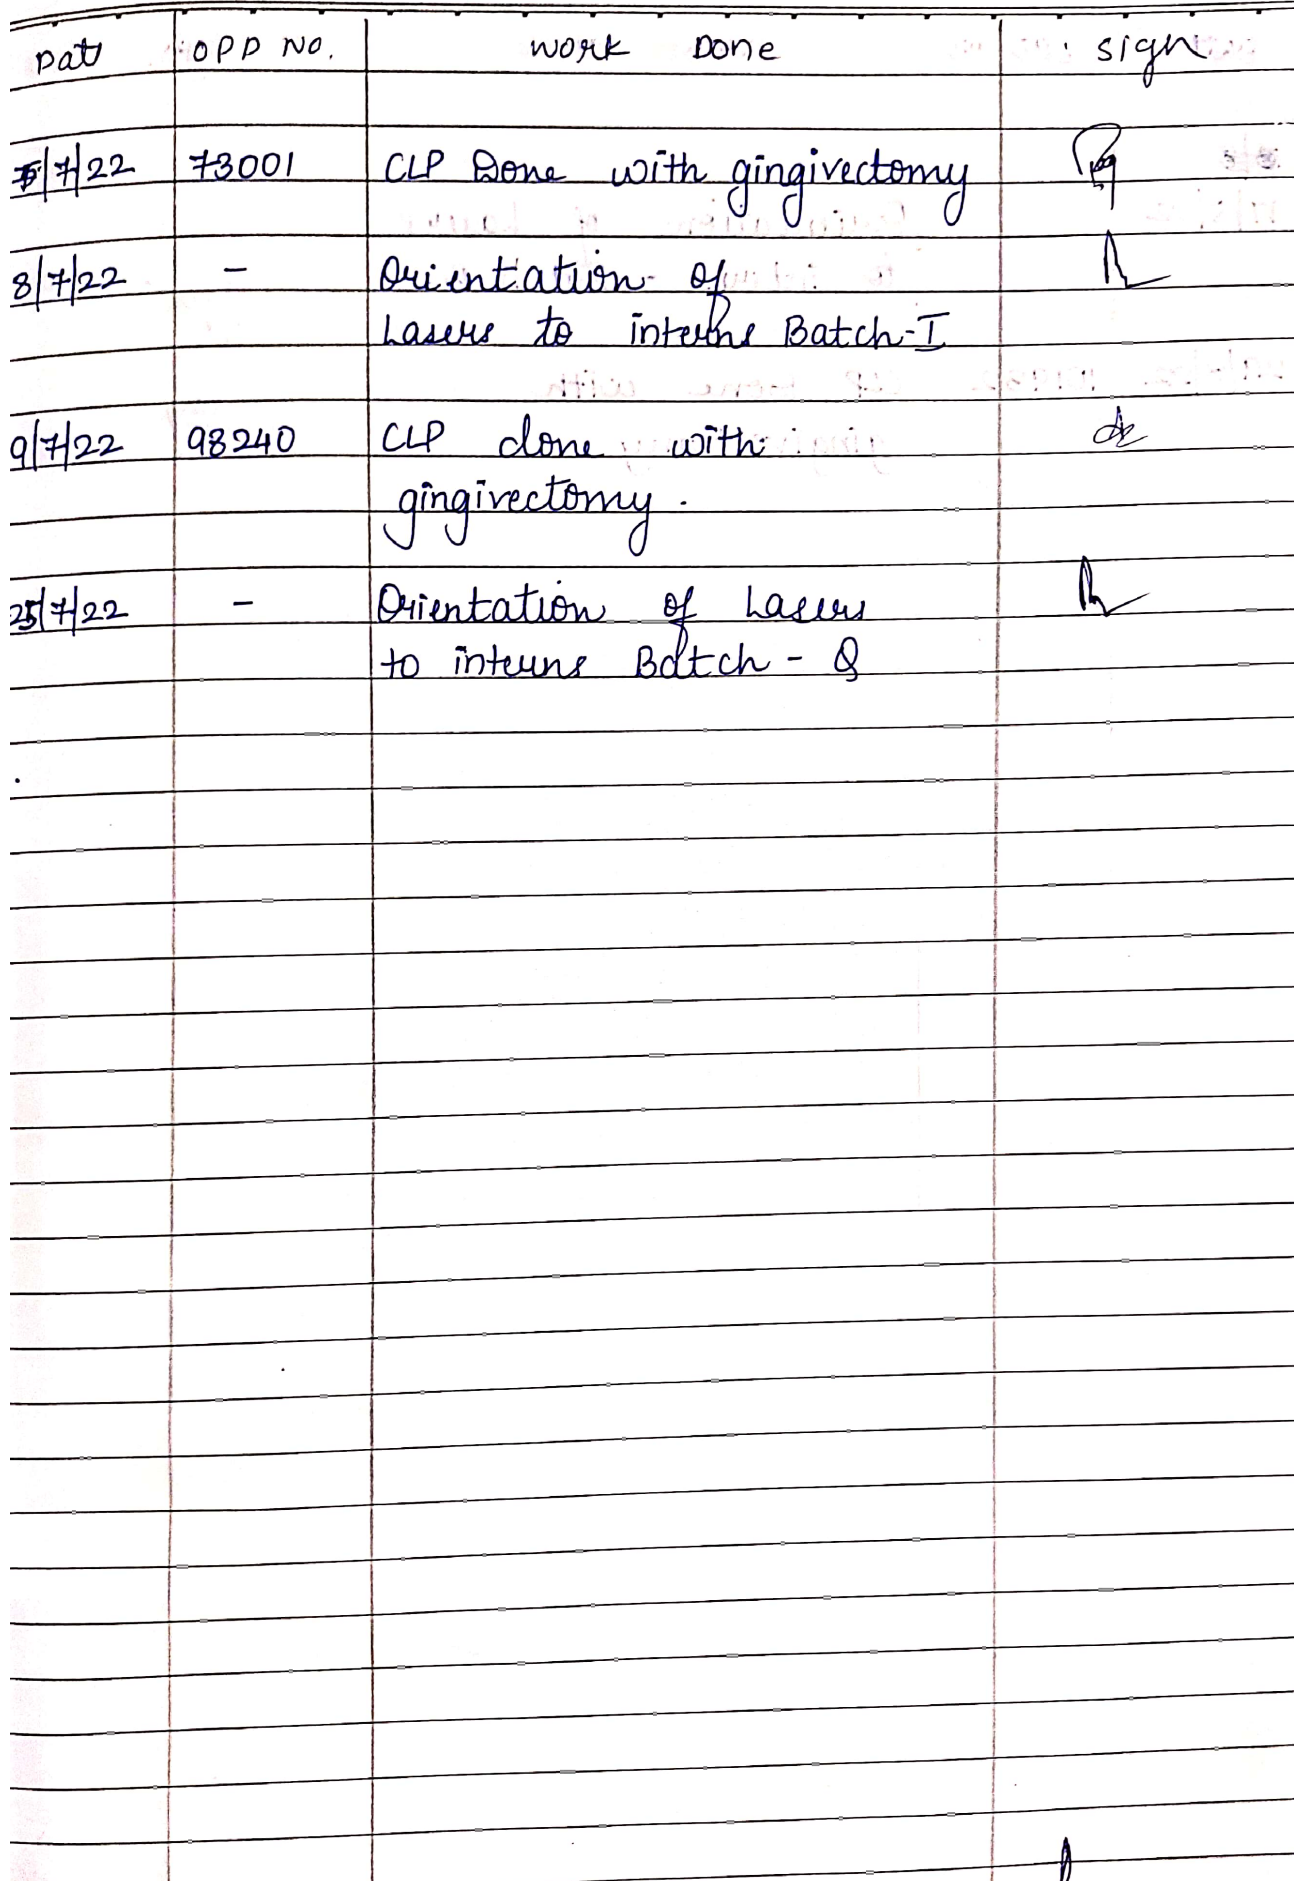 Date OPD No. Work Done Sign
5/7/22 73001 CLP Done with gingivectomy
8/7/22 - Orientation of
Lasers to interns Batch-I
9/7/22 98240 CLP done with
gingivectomy.
25/7/22 - Orientation of Lasers
to interns Batch - Q